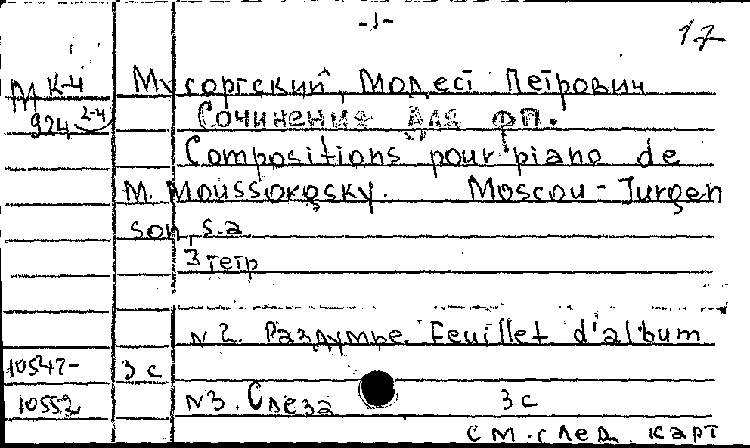 -1-
17
М К-4 Мусоргский, Модест Петрович
924 2-4 Сочинения для фп.
Compositions pour piano de
M. Moussorgsky. Moscou - Jurgen
son, s.a.
3 тетр
N2. Раздумье. Feuillet d'album
10547- 3 с
10552 N3. Слеза 3 с
см. след. карт